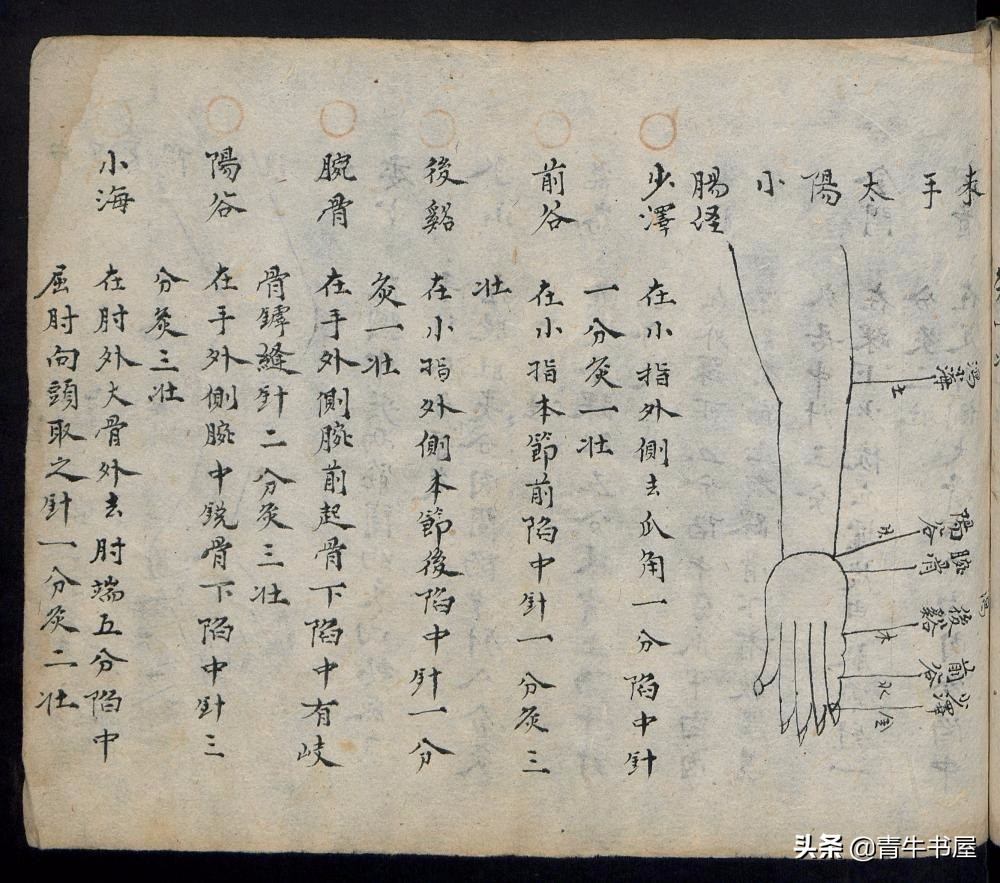 手太陽小
腸经
少澤
在小指外側去爪角一分陷中針
一分灸一壮
前谷
在小指本節前陷中針一分灸三
壮
後谿
在小指外側本節後陷中針一分
灸一壮
腕骨
在手外側腕前起骨下陷中有岐
骨罅縫針二分灸三壮
陽谷
在手外側腕中銳骨下陷中針三
分灸三壮
小海
在肘外大骨外去肘端五分陷中
屈肘向頭取之針一分灸二壮
土
陽谷
腕骨
後谿
木
前谷
水
少澤
金
头条 @青牛书屋